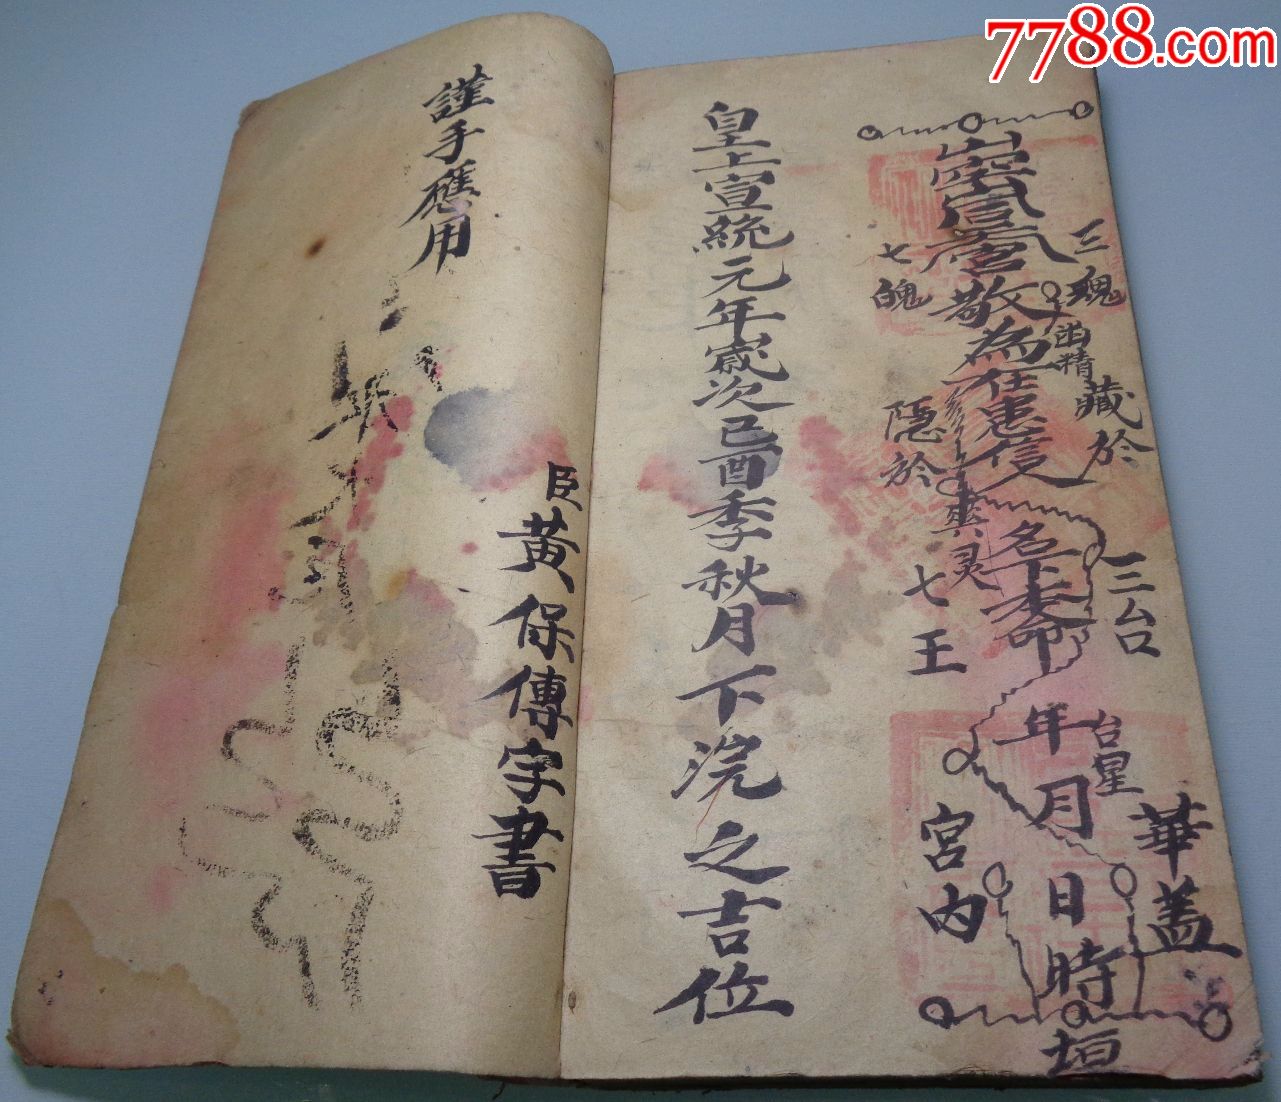 7788.com
三魂
藏於
三台
華蓋
幽精
台星
敬為在患信人
名下本命
年月日時
垣
爽灵
七魄
隱於
七王
宮内
皇上宣統元年歲次己酉季秋月下浣之吉位
臣黃保傳字書
謹手應用